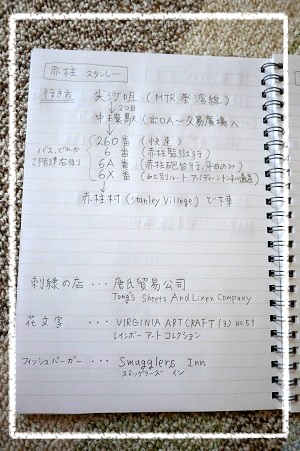 赤柱 スタンレー
行き方 尖沙咀 (MTR 荃湾線)
↓ 2つ目
中環駅 (出口A〜交易廣場へ...
バス、どれか 260番 (快速)
2階建右側り 6番 (赤柱監獄行)
6A番 (赤柱砲台行、平日のみ)
6X番
赤柱村 (Stanley Villege) で下車
刺繍の店 ・・・ 唐氏貿易公司
Tong's Sheets And Linen Company
花文字 ・・・ VIRGINIA ART CRAFT (3) No.51
レインボー アート コレクション
フィッシュバーガー ・・・ Smugglers Inn
スマッグラーズ イン